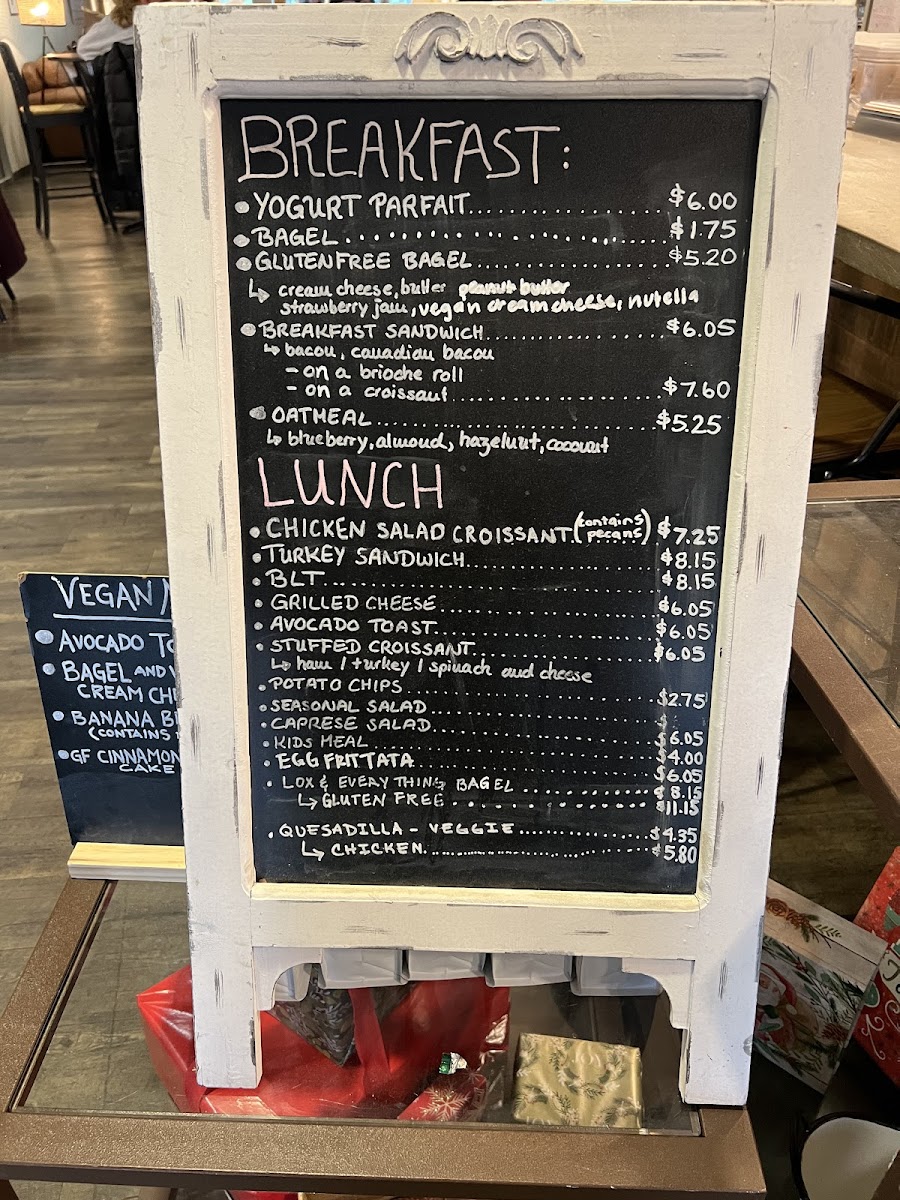 BREAKFAST:
• YOGURT PARFAIT................ $6.00
• BAGEL................ $1.75
• GLUTENFREE BAGEL................ $5.20
↳ cream cheese, butter peanut butter
strawberry jam, vegan cream cheese, nutella
• BREAKFAST SANDWICH................ $6.05
↳ bacon, canadian bacon
- on a brioche roll
- on a croissant................ $7.60
• OATMEAL................ $5.25
↳ blueberry, almond, hazelnut, coconut
LUNCH
• CHICKEN SALAD CROISSANT (contains pecans) $7.25
• TURKEY SANDWICH................ $8.15
• BLT................ $8.15
• GRILLED CHEESE................ $6.05
• AVOCADO TOAST................ $6.05
• STUFFED CROISSANT................ $6.05
↳ ham / turkey / spinach and cheese
• POTATO CHIPS................ $2.75
• SEASONAL SALAD................
• CAPRESE SALAD................ $6.05
• KIDS MEAL................ $4.00
• EGG FRITTATA................ $6.05
• LOX & EVERYTHING BAGEL................ $8.15
↳ GLUTEN FREE................ $11.15
• QUESADILLA - VEGGIE................ $4.35
↳ CHICKEN................ $5.80
VEGAN
• AVOCADO
• BAGEL AND
CREAM
• BANANA
(CONTAINS
• GF CINNAMON
CAKE